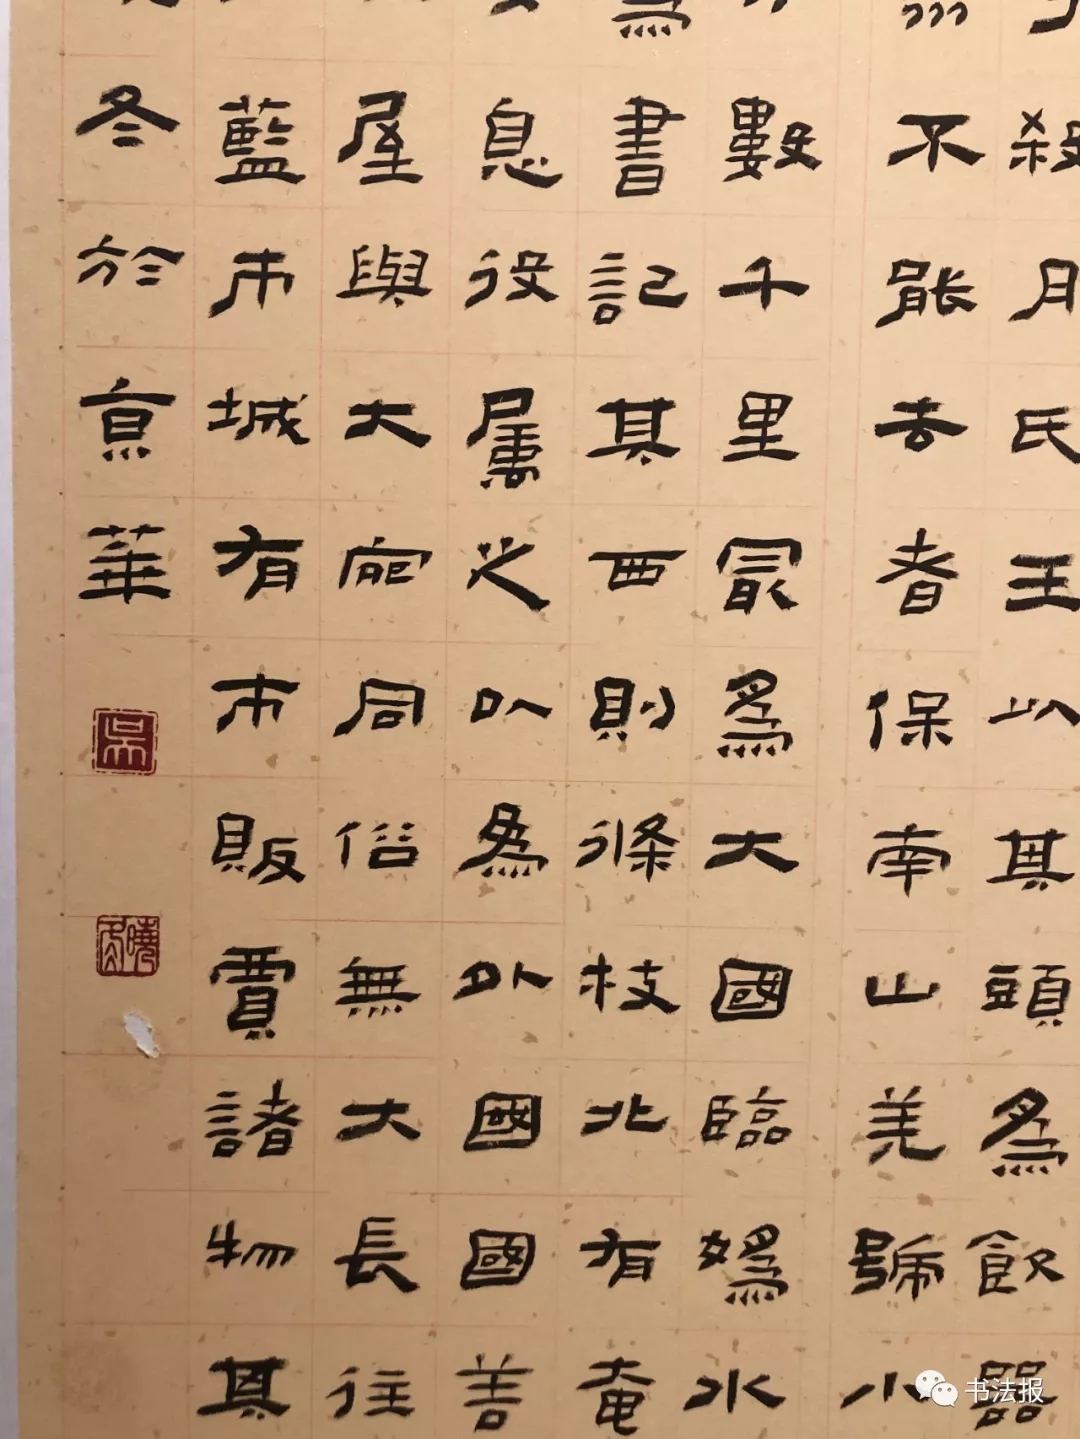 殺月氏王以其頭為飲器
不能去者保南山羌號小
數千里最為大國臨媯水
為書記其西則條枝北有奄
息役屬之以為外國國善
屋與大宛同俗無大長往
藍市城有市販賈諸物其
冬於京華
吳
曉
书法报